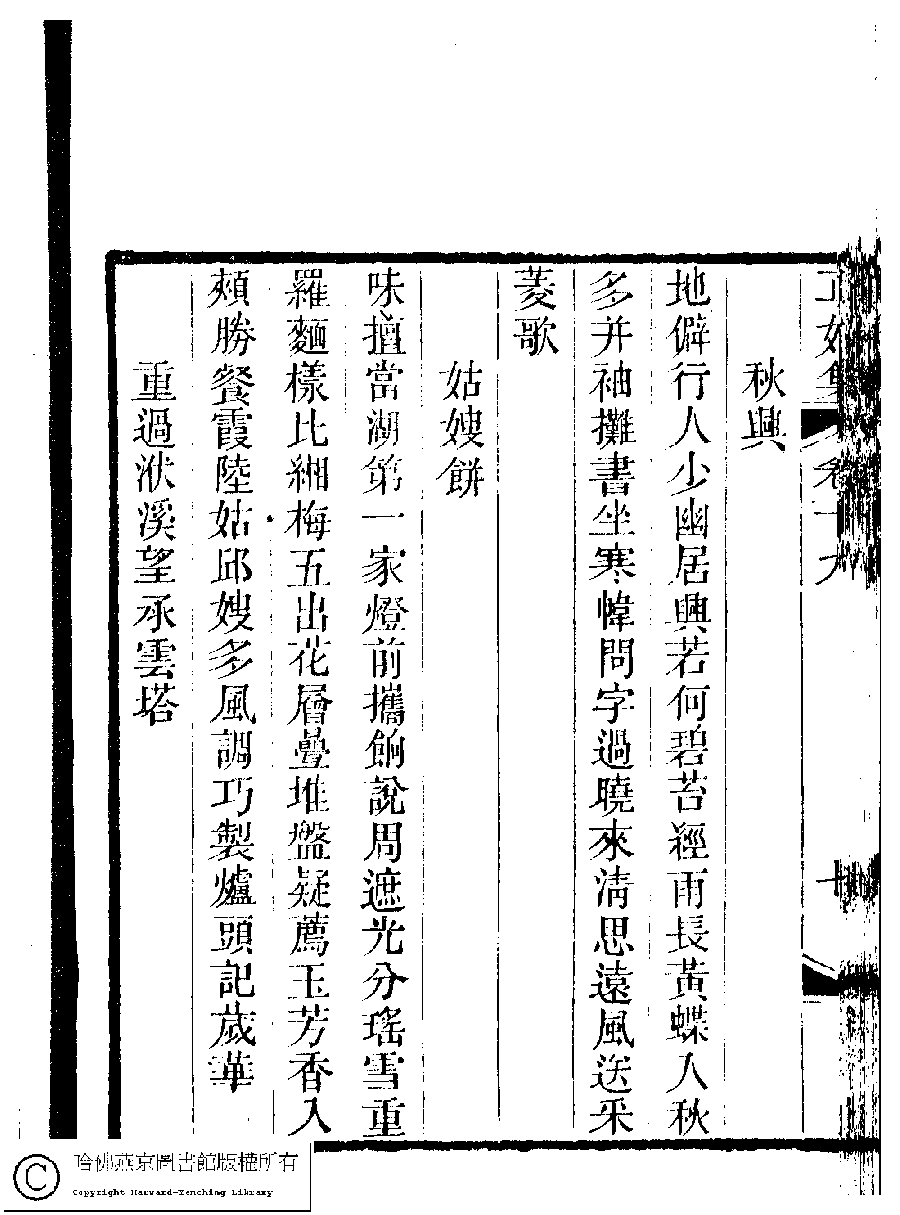 秋興
地僻行人少幽居興若何碧苔經雨長黃蝶入秋
多并袖攤書坐寒幃問字過曉來淸思遠風送采
菱歌
姑嫂餅
味擅當湖第一家燈前攜餉說周遮光分瑤雪重
羅麵樣比緗梅五出花層疊堆盤疑薦玉芳香入
頰勝餐霞陸姑邱嫂多風調巧製爐頭記歲華
重過洑溪望承雲塔
哈佛燕京圖書館版權所有
Copyright Harvard-Yenching Library